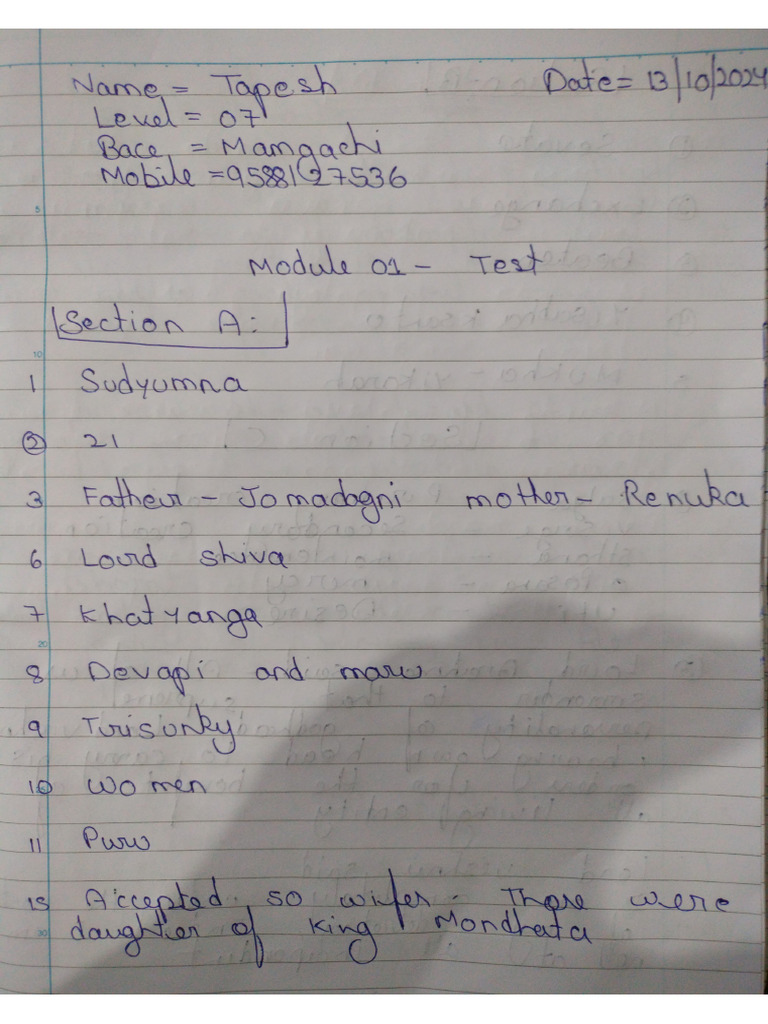 Name = Tapesh Date = 13/10/2024
Level = 07
Bace = Mamgachi
Mobile = 9588127536
Module 01 - Test
Section A:
1 Sudyumna
2 21
3 Father - Jomadagni mother - Renuka
6 Lord shiva
7 Khatyanga
8 Devapi and maru
9 Trisunky
10 Women
11 Puru
15 Accepted 50 wifes. Those were
daughter of King Mondhata